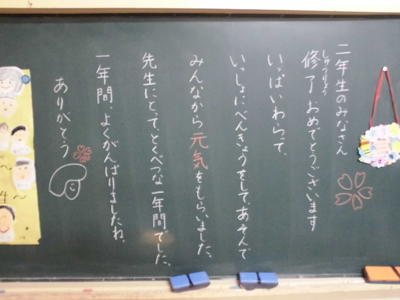 二年生のみなさん
修了 おめでとうございます
しゅうりょう
いっぱいわらって、
いっしょにべんきょうをして、あそんで
みんなから元気をもらいました。
先生にとって、とくべつな一年間でした。
一年間、よくがんばりましたね。
ありがとう